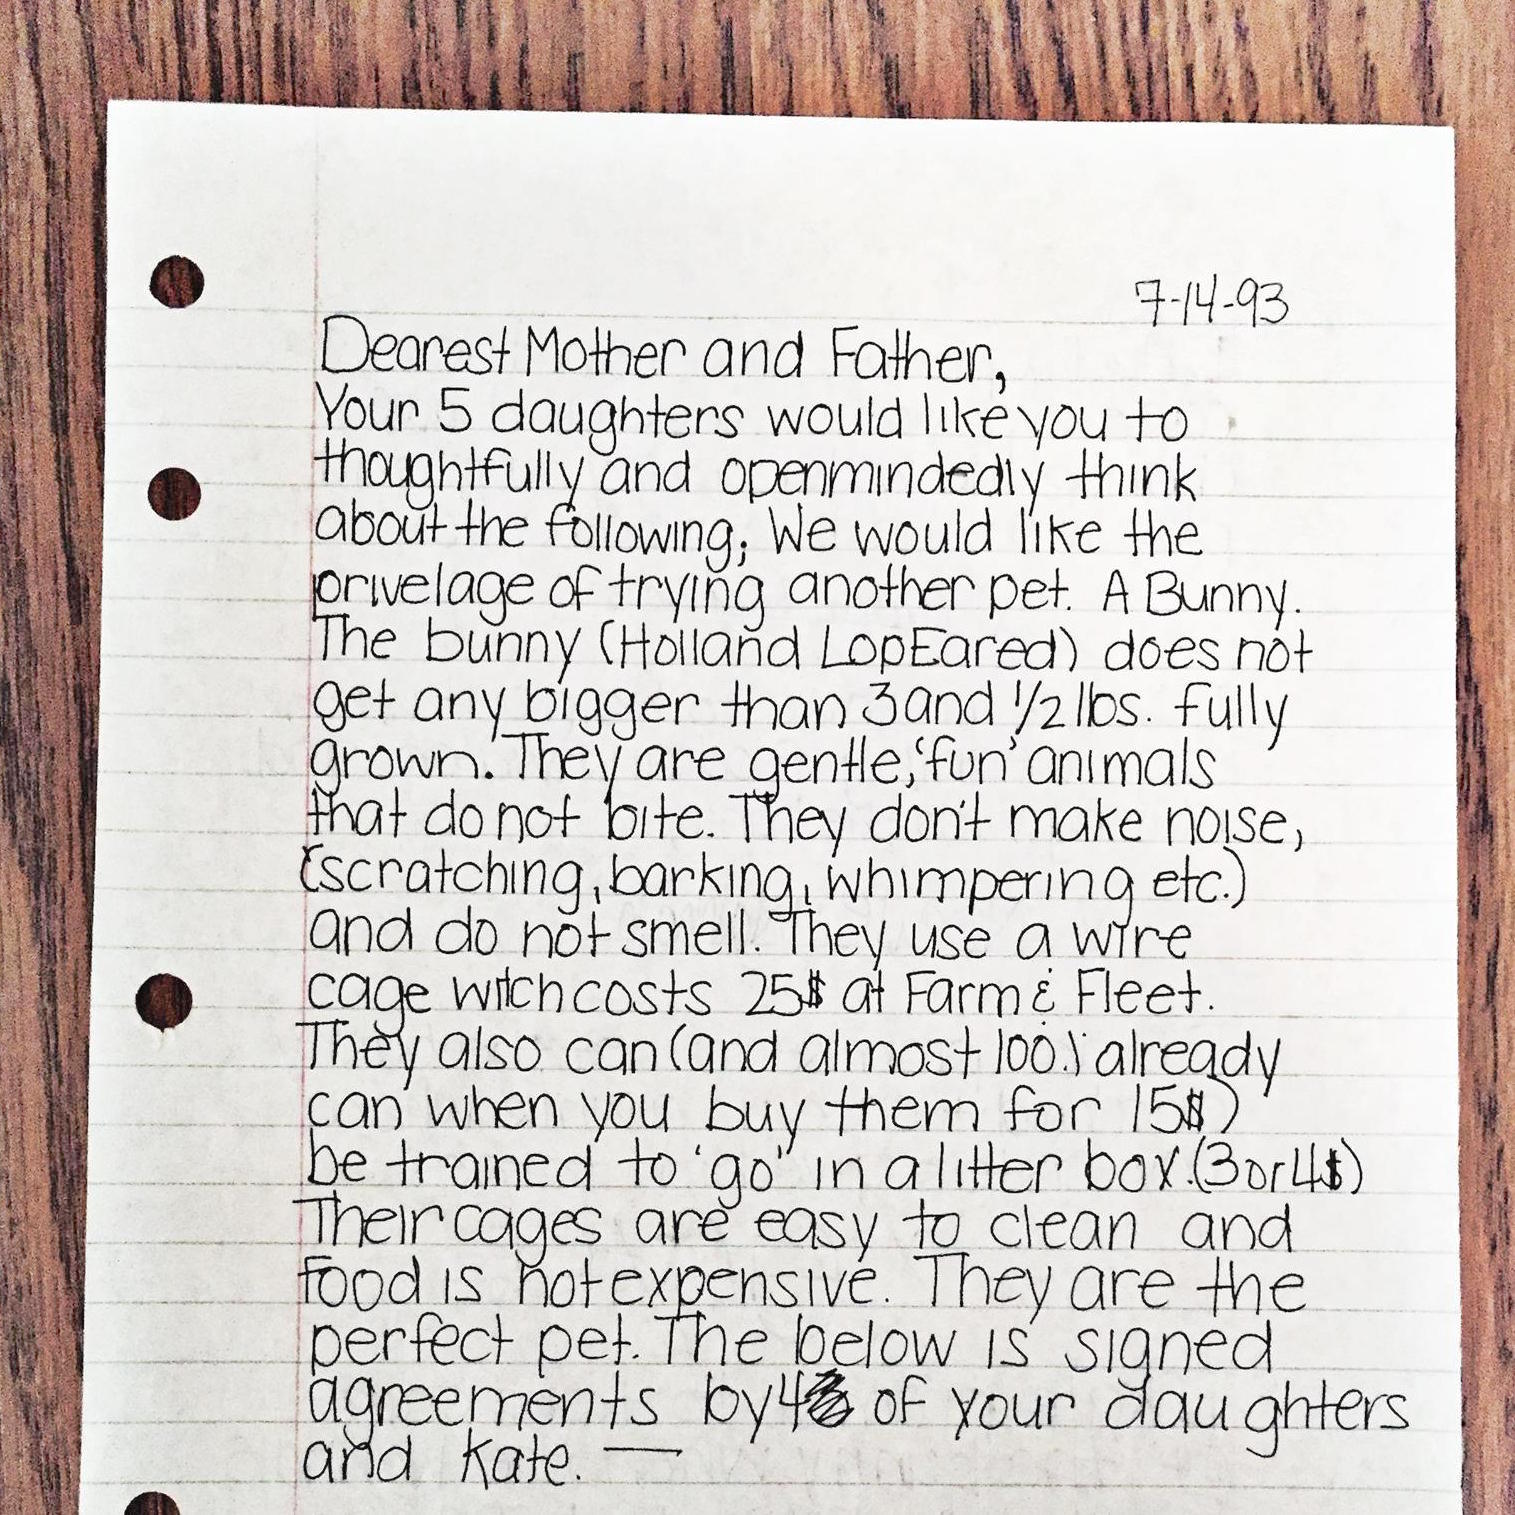 7-14-93
Dearest Mother and Father,
Your 5 daughters would like you to
thoughtfully and openmindedly think
about the following; We would like the
privelage of trying another pet. A Bunny.
The bunny (Holland LopEared) does not
get any bigger than 3 and 1/2 lbs. fully
grown. They are gentle, 'fun' animals
that do not bite. They don't make noise,
(scratching, barking, whimpering etc.)
and do not smell. They use a wire
cage witch costs 25$ at Farm & Fleet.
They also can (and almost 100.) already
can when you buy them for 15$)
be trained to 'go' in a litter box. (3 or 4$)
Their cages are easy to clean and
food is not expensive. They are the
perfect pet. The below is signed
agreements by 4 of your daughters
and Kate. —